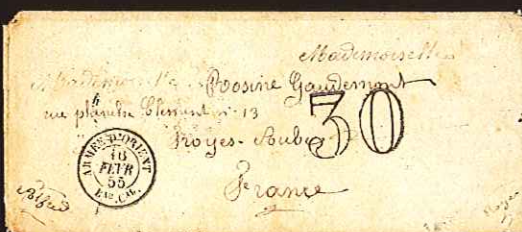 Mademoiselle
Mademoiselle Rosine Gaudemont
rue planche Clément nº 13
Troyes - Aube
30
France
ARMÉE D'ORIENT
16
FEVR
55
Bau. CAL.